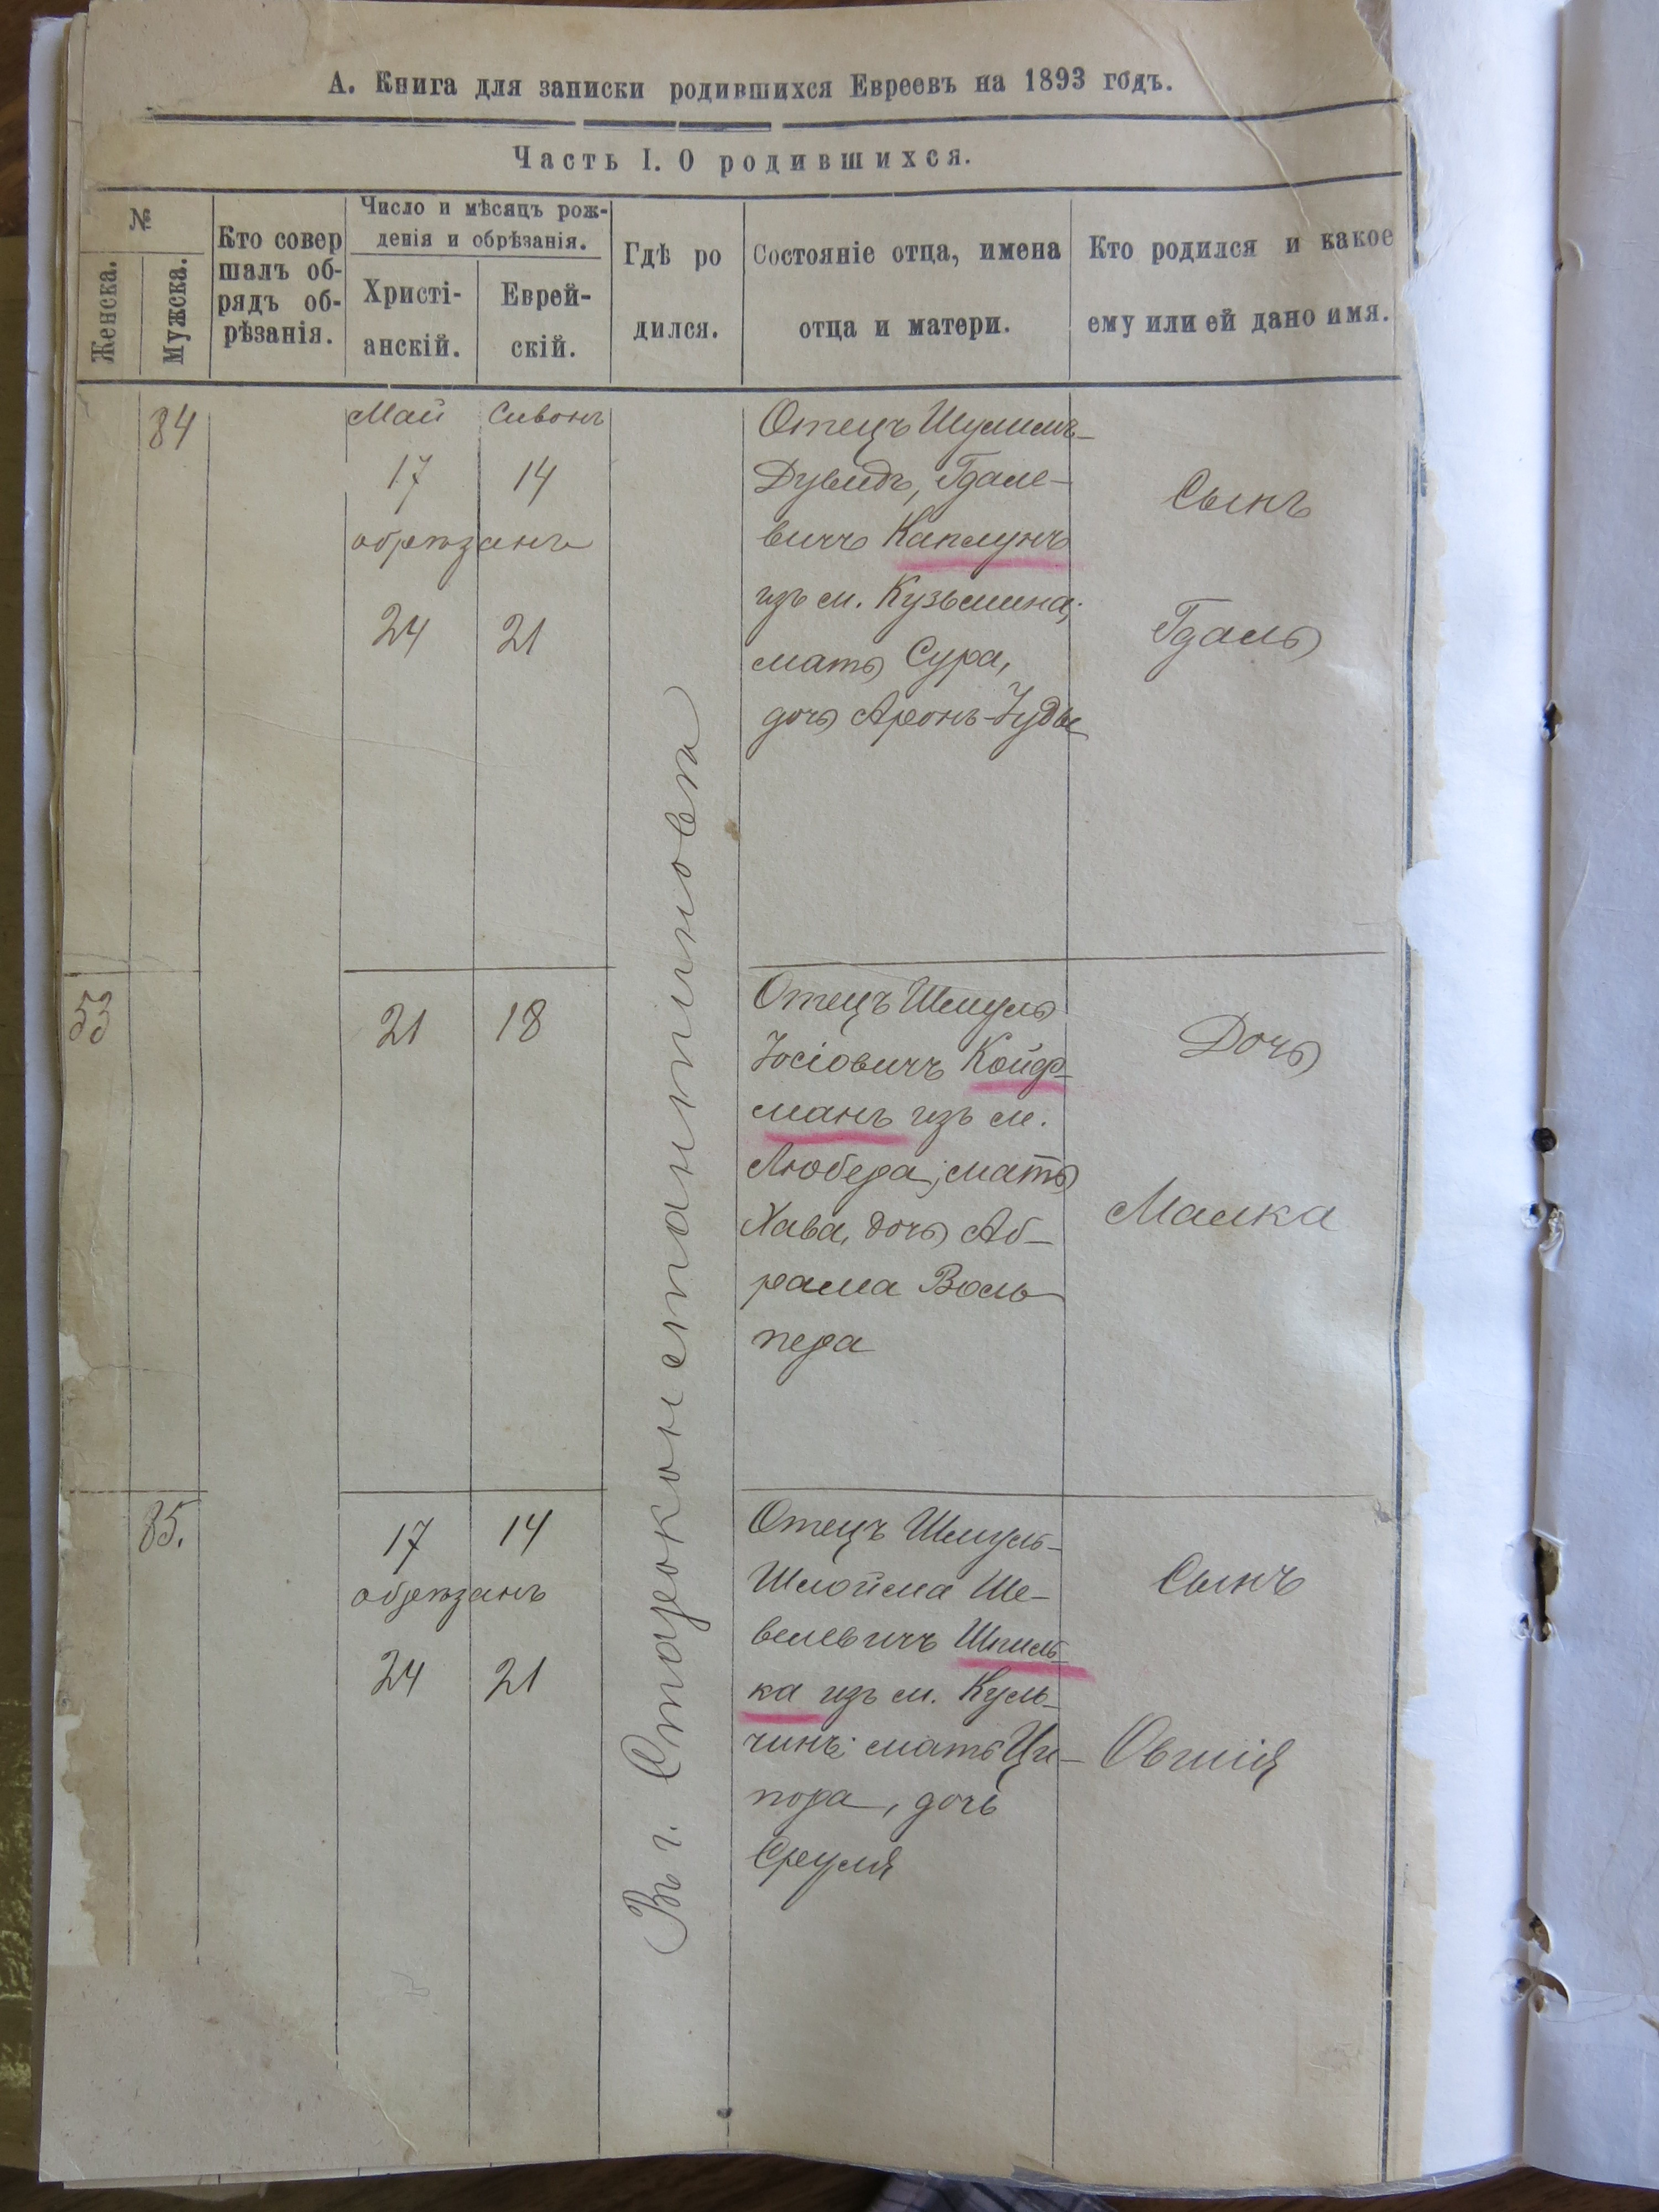 А. Книга для записки родившихся Евреевъ на 1893 годъ.
Часть I. О родившихся.
№
Женска.
Мужска.
Кто совер
шалъ об-
рядъ об-
рѣзанія.
Число и мѣсяцъ рож-
денія и обрѣзанія.
Христі-
анскій.
Еврей-
скій.
Гдѣ ро
дился.
Состояніе отца, имена
отца и матери.
Кто родился и какое
ему или ей дано имя.
84
Май Сивонъ
17 14
обрѣзанъ
24 21
Отецъ Шулимъ-
Дувидъ, Гдале-
вичъ Каплунъ
изъ м. Кузьмина;
мать Сура,
дочь Аронъ-Іуды
Сынъ
Гдаль
Въ г. Староконстантиновѣ
53
21 18
Отецъ Шмуль
Іосіовичъ Койф-
манъ изъ м.
Любера; мать
Хава, дочь Аб-
рама Воль
пера
Дочь
Малка
85.
17 14
обрѣзанъ
24 21
Отецъ Шмуль-
Шлойма Ше-
велевичъ Шпиль-
ка изъ м. Куль-
чинъ; мать Ци-
пора, дочь
Сруля
Сынъ
Овшія